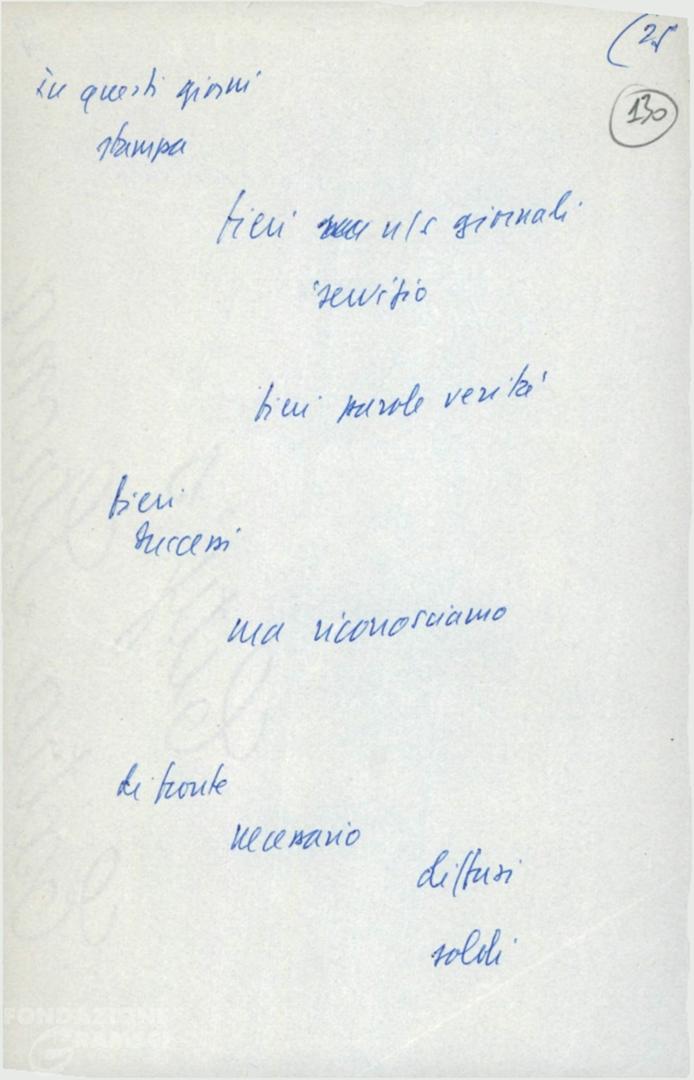 (25
130
in questi giorni
stampa
fieri n/s giornali
servizio
fieri parole verità
fieri
successi
ma riconosciamo
di fronte
necessario
diffusi
soldi
FONDAZIONE
GRAMSCI